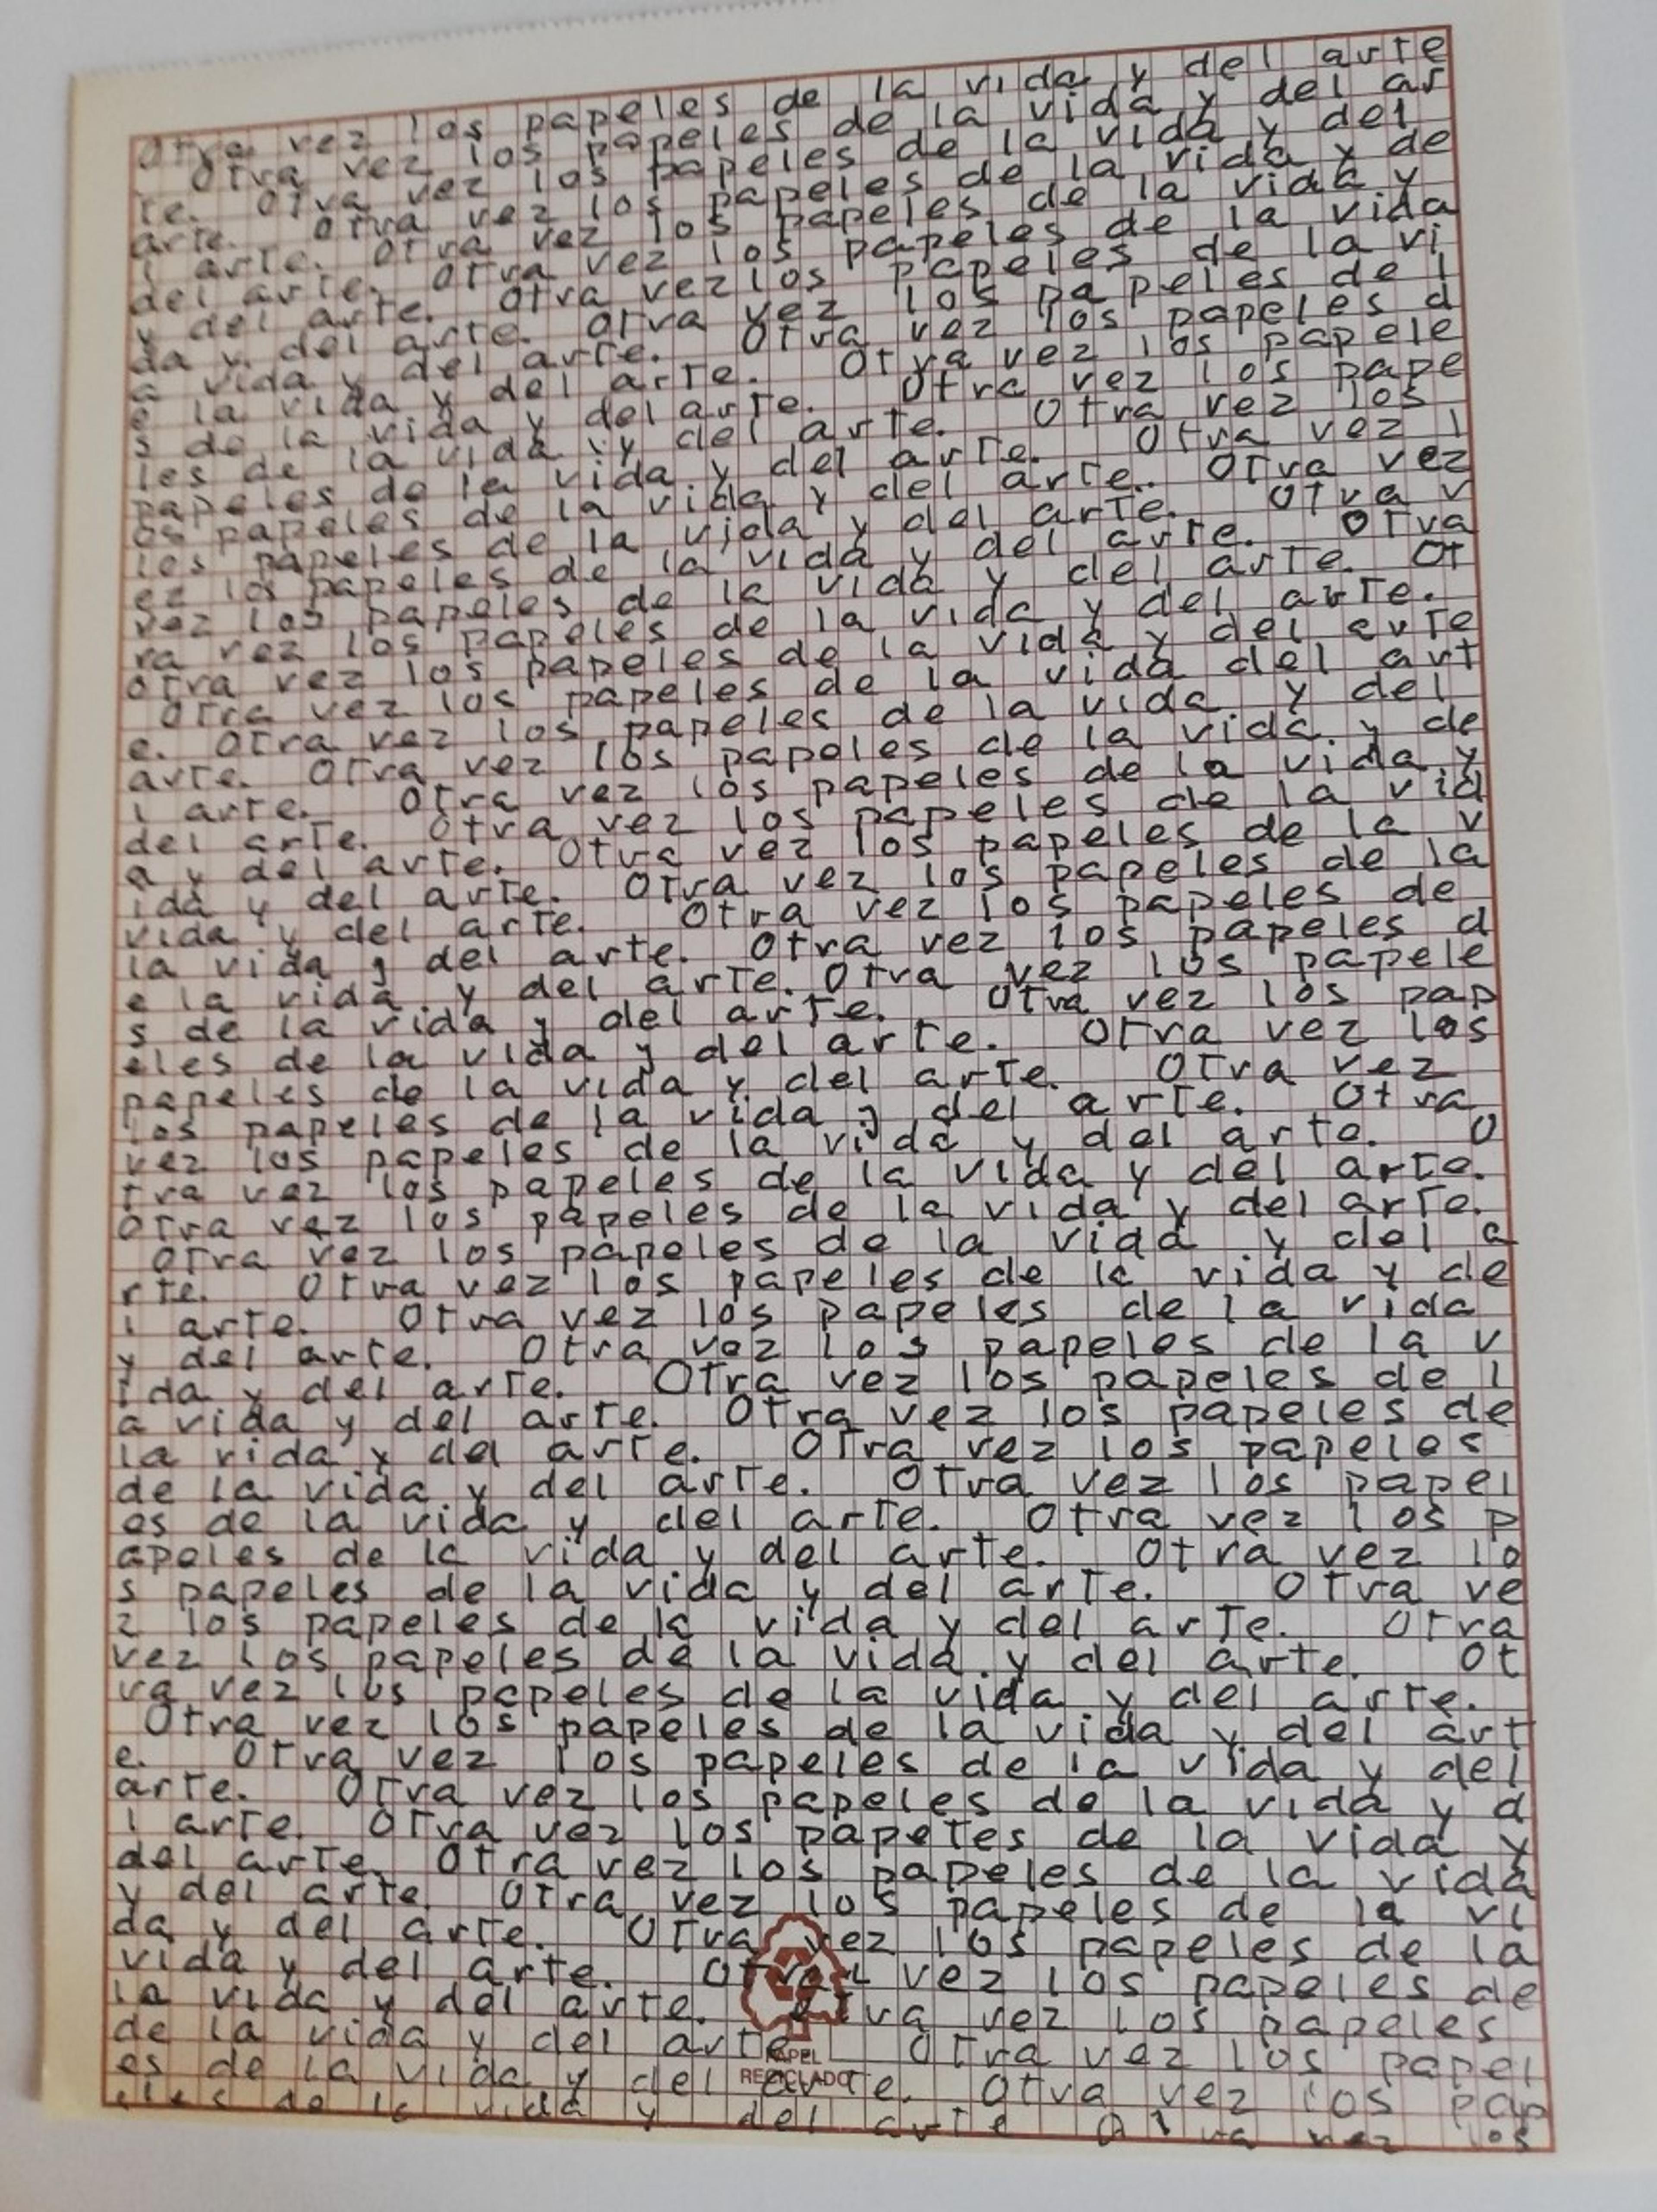 Otra vez los papeles de la vida y del arte
Otra vez los papeles de la vida y del ar
te. Otra vez los papeles de la vida y del
arte. Otra vez los papeles de la vida y de
l arte. Otra vez los papeles de la vida y
del arte. Otra vez los papeles de la vida
y del arte. Otra vez los papeles de la vi
da y del arte. Otra vez los papeles de l
a vida y del arte. Otra vez los papeles d
e la vida y del arte. Otra vez los papele
s de la vida y del arte. Otra vez los pape
les de la vida y del arte. Otra vez los
papeles de la vida y del arte. Otra vez l
os papeles de la vida y del arte. Otra vez
los papeles de la vida y del arte. Otra v
ez los papeles de la vida y del arte. Otra
vez los papeles de la vida y del arte. Ot
ra vez los papeles de la vida y del arte.
otra vez los papeles de la vida y del arte
Otra vez los papeles de la vida del art
e. Otra vez los papeles de la vida y del
arte. Otra vez los papeles de la vida y de
l arte. Otra vez los papeles de la vida y
del arte. Otra vez los papeles de la vid
a y del arte. Otra vez los papeles de la v
ida y del arte. Otra vez los papeles de la
vida y del arte. Otra vez los papeles de
la vida y del arte. Otra vez los papeles d
e la vida y del arte. Otra vez los papele
s de la vida y del arte. Otra vez los pap
eles de la vida y del arte. Otra vez los
papeles de la vida y del arte. Otra vez
los papeles de la vida y del arte. Otra
vez los papeles de la vida y del arte. O
tra vez los papeles de la vida y del arte.
Otra vez los papeles de la vida y del arte.
Otra vez los papeles de la vida y del a
rte. Otra vez los papeles de la vida y de
l arte. Otra vez los papeles de la vida
y del arte. Otra vez los papeles de la v
ida y del arte. Otra vez los papeles de l
a vida y del arte. Otra vez los papeles de
la vida y del arte. Otra vez los papeles
de la vida y del arte. Otra vez los papel
es de la vida y del arte. Otra vez los p
apeles de la vida y del arte. Otra vez lo
s papeles de la vida y del arte. Otra ve
z los papeles de la vida y del arte. Otra
vez los papeles de la vida y del arte. Ot
ra vez los papeles de la vida y del arte.
Otra vez los papeles de la vida y del art
e. Otra vez los papeles de la vida y del
arte. Otra vez los papeles de la vida y d
l arte. Otra vez los papeles de la vida y
del arte. Otra vez los papeles de la vida
y del arte. Otra vez los papeles de la vi
da y del arte. Otra vez los papeles de la
vida y del arte. Otra vez los papeles de
la vida y del arte. Otra vez los papeles
de la vida y del arte. Otra vez los papel
es de la vida y del arte. Otra vez los pap
eles de la vida y del arte Otra vez los
PAPEL
RECICLADO